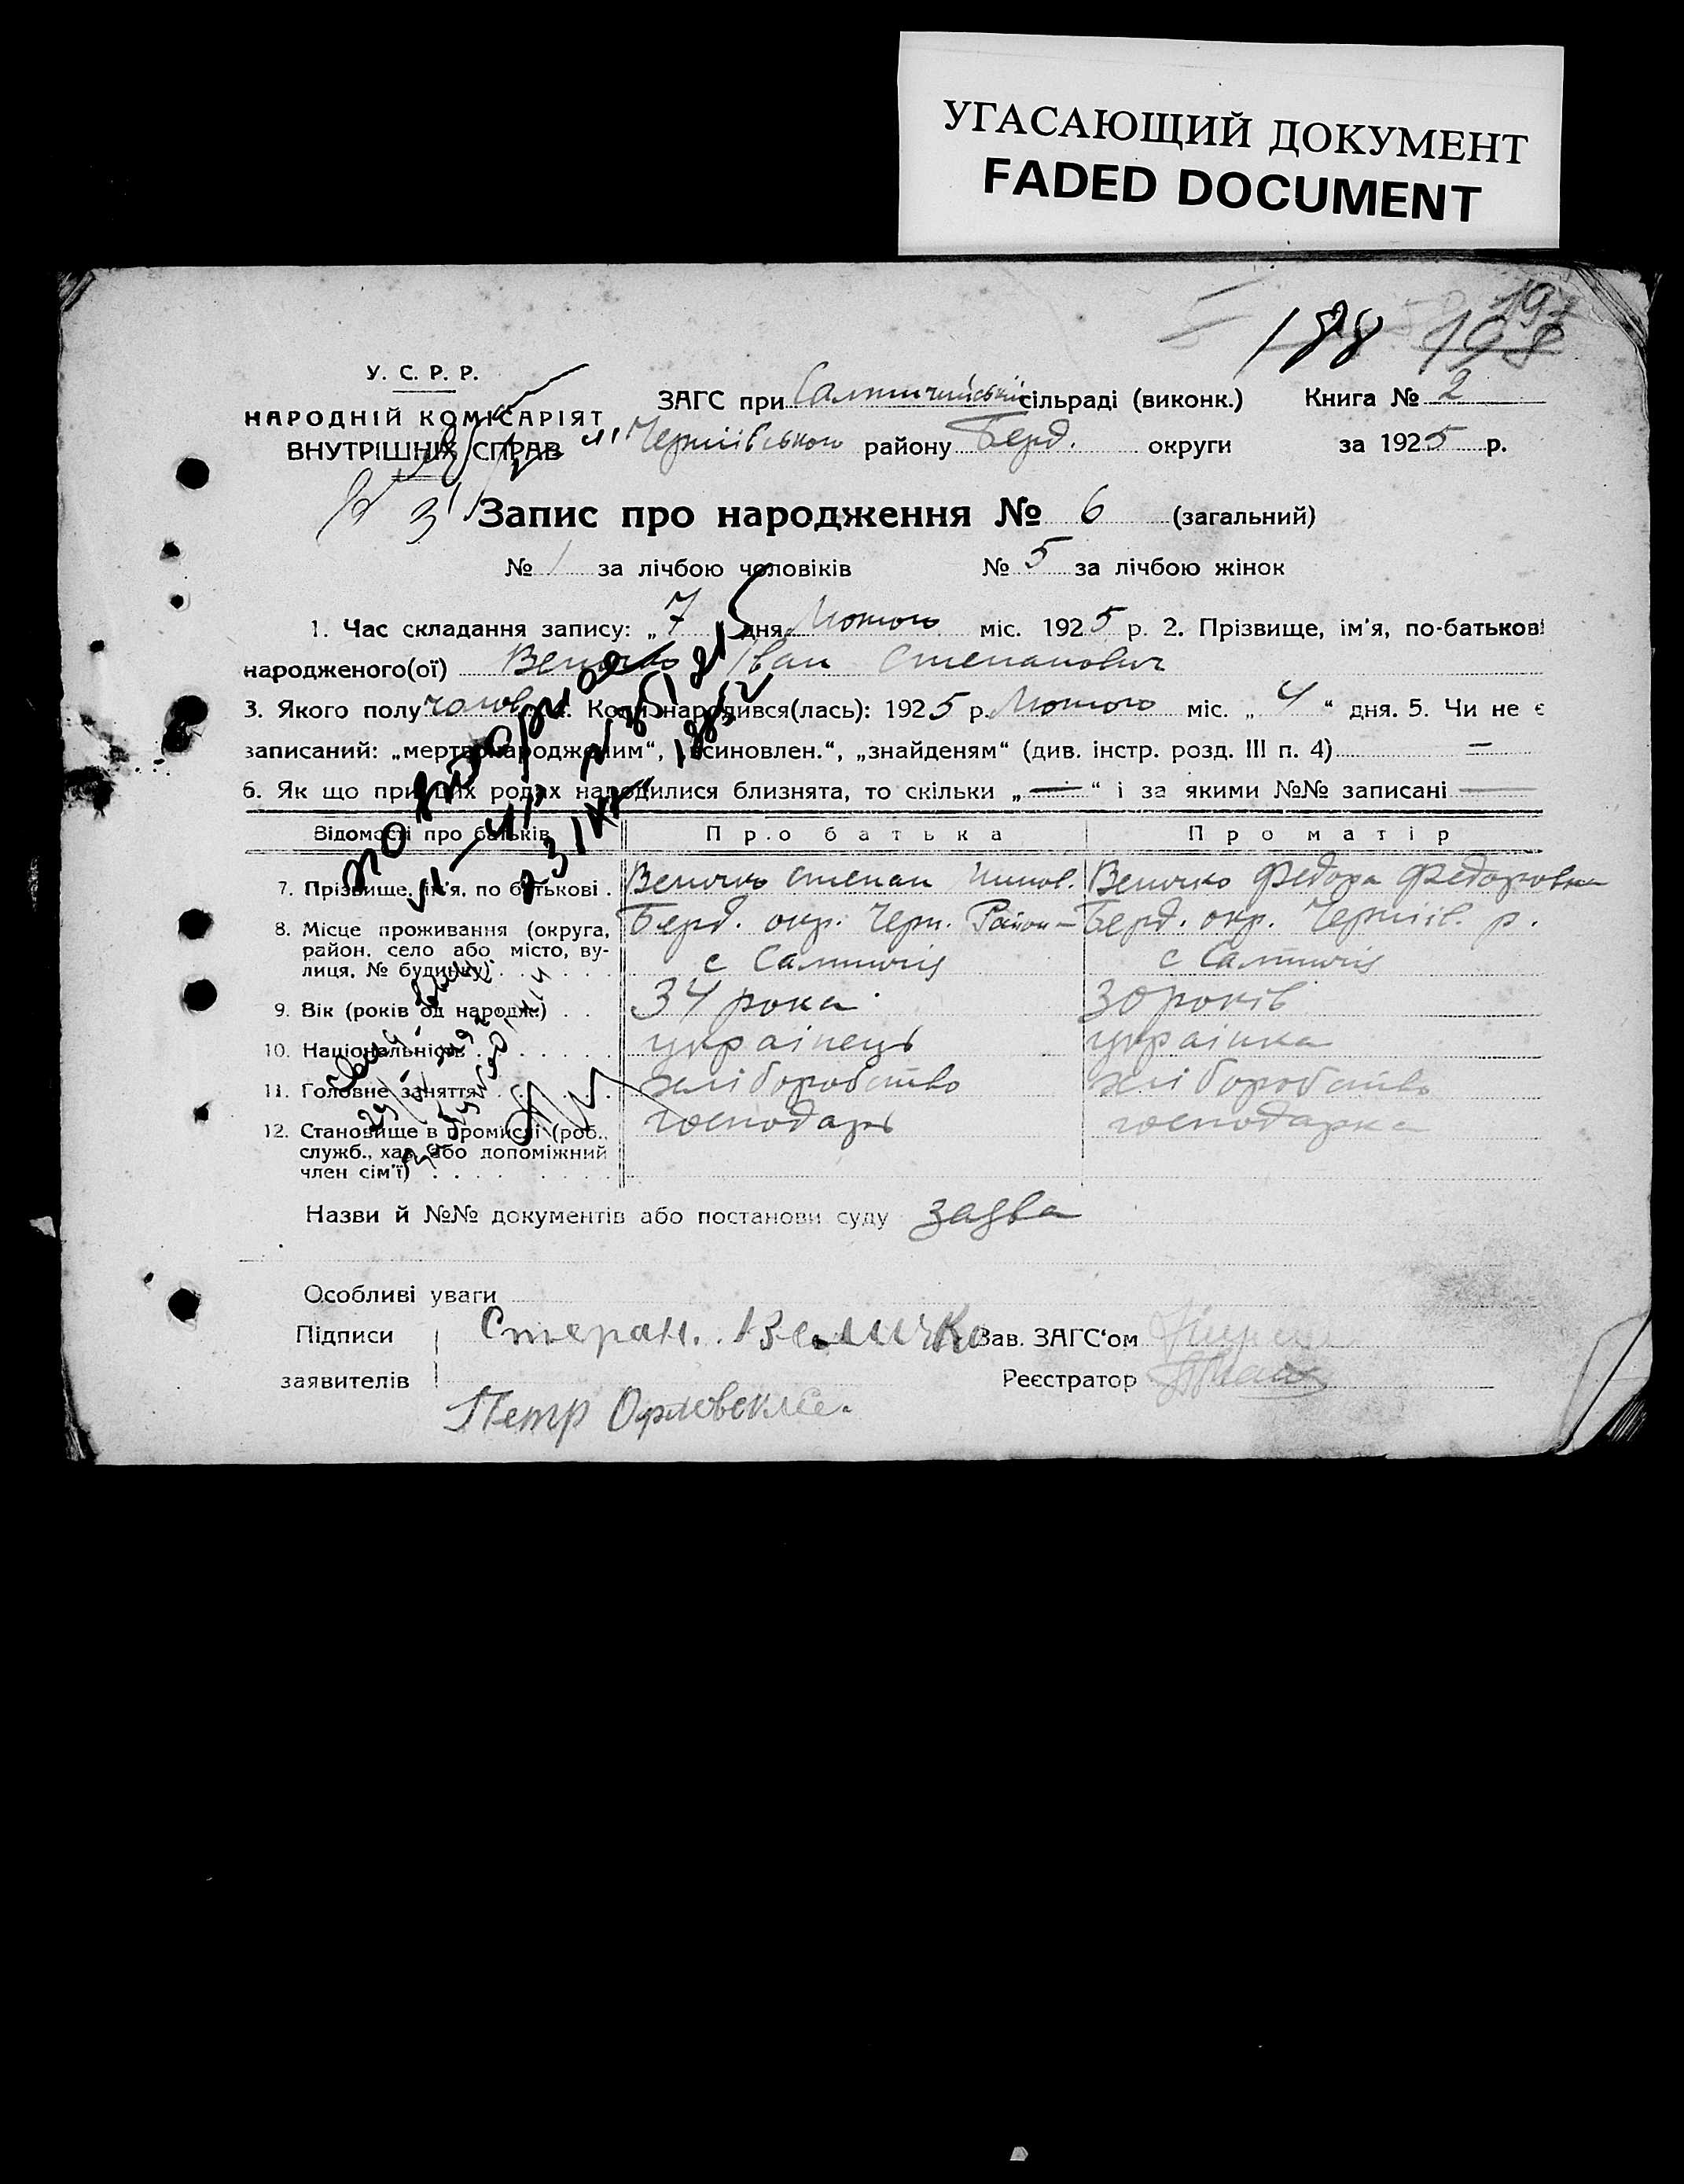 УГАСАЮЩИЙ ДОКУМЕНТ
FADED DOCUMENT
188 198 197
У. С. Р. Р.
НАРОДНІЙ КОМІСАРІЯТ
ВНУТРІШНІХ СПРАВ
ЗАГС при Салтичийській сільраді (виконк.) Книга № 2
Чернігівського району Берд. округи за 1925 р.
Запис про народження № 6 (загальний)
№ 1 за лічбою чоловіків № 5 за лічбою жінок
1. Час складання запису: „7 дня Лютого міс. 1925 р. 2. Прізвище, ім'я, по-батькові
народженого(ої) Величко Іван Степанович
3. Якого полу чолов. 4. Коли народився(лась): 1925 р. Лютого міс. „ 4 “ дня. 5. Чи не є
записаний: „мертвонародженим“, „всиновлен.“, „знайденям“ (див. інстр. розд. III п. 4) —
6. Як що при цих родах народилися близнята, то скільки „ — “ і за якими №№ записані —
Відомості про батьків Про батька Про матір
7. Прізвище, ім'я, по батькові . Величко Степан Величко Федора Федоровна
8. Місце проживання (округа, район, село або місто, вулиця, № будинку) Берд. окр. Черн. Район – Берд. окр. Чернігів. р.
с Салтичія с Салтичія
9. Вік (років од народж.) . . 34 рока 30 років
10. Національність українець українка
11. Головне заняття хліборобство хліборобство
12. Становище в промислі (роб., господарь господарка
служб., хаз. або допоміжний
член сім'ї)
Назви й №№ документів або постанови суду заява
Особливі уваги
Підписи Степан. Величко Зав. ЗАГС'ом
заявителів Реєстратор
Петр